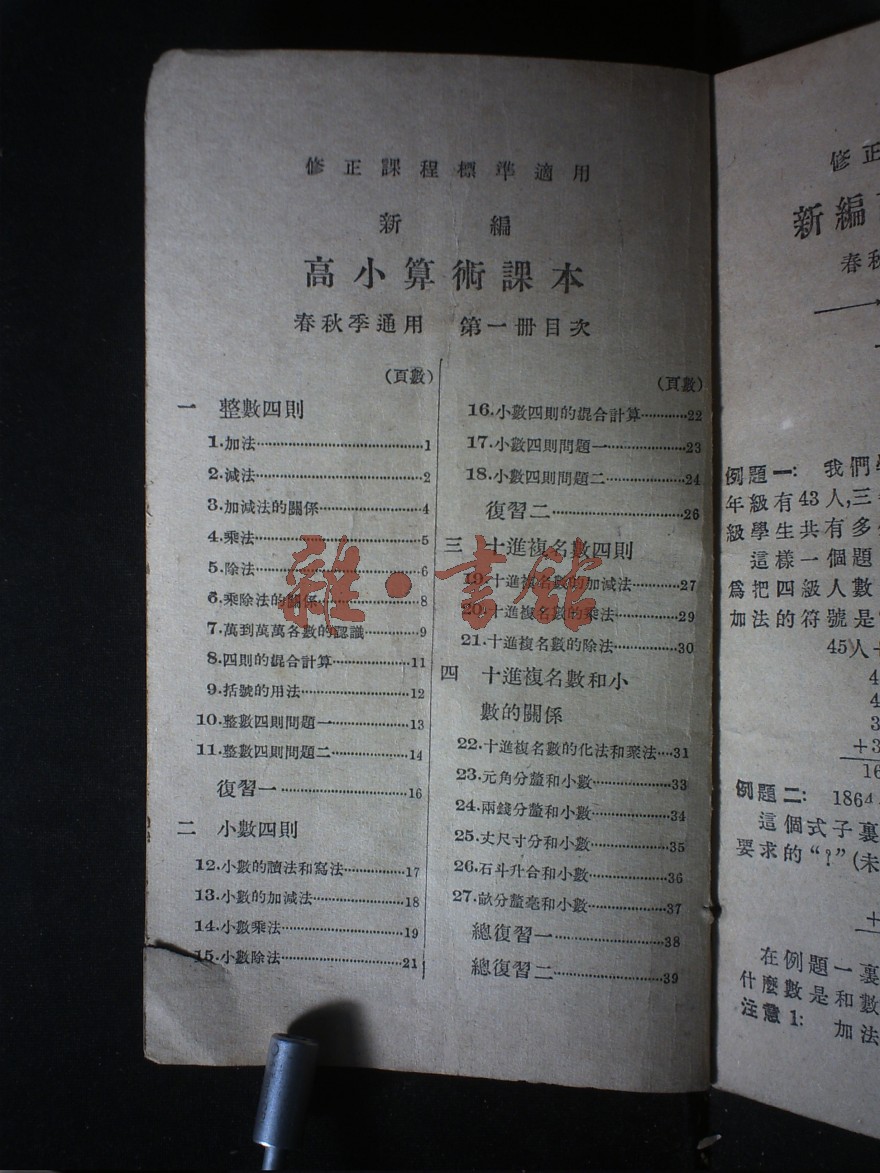 修正課程標準適用
新編
高小算術課本
春秋季通用 第一冊目次
(頁數)
一 整數四則
1.加法…………1
2.減法…………2
3.加減法的關係…………4
4.乘法…………5
5.除法…………6
6.乘除法的關係…………8
7.萬到萬萬各數的認識…………9
8.四則的混合計算…………11
9.括號的用法…………12
10.整數四則問題一…………13
11.整數四則問題二…………14
復習一…………16
二 小數四則
12.小數的讀法和寫法…………17
13.小數的加減法…………18
14.小數乘法…………19
15.小數除法…………21
(頁數)
16.小數四則的混合計算…………22
17.小數四則問題一…………23
18.小數四則問題二…………24
復習二…………26
三 十進複名數四則
19.十進複名數的加減法…………27
20.十進複名數的乘法…………29
21.十進複名數的除法…………30
四 十進複名數和小
數的關係
22.十進複名數的化法和聚法…31
23.元角分釐和小數…………33
24.兩錢分釐和小數…………34
25.丈尺寸分和小數…………35
26.石斗升合和小數…………36
27.畝分釐毫和小數…………37
總復習一…………38
總復習二…………39
雜·書館
修正
新編
春秋
例題一: 我們學
年級有43人,三
級學生共有多
這樣一個題
爲把四級人數
加法的符號是
45人+
4
4
3
+3
16
例題二: 1864
這個式子裏
要求的“?”(未
+
在例題一裏
什麼數是和數
注意1: 加法